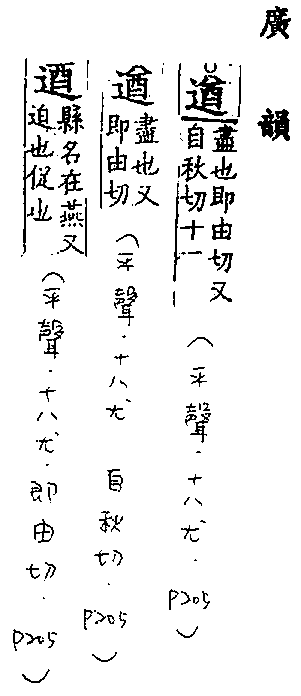 廣韻
遒
盡也即由切又
自秋切十一
(平聲.十八尤.P205)
遒
盡也又
即由切
(平聲.十八尤 自秋切.P205)
逎
縣名在燕又
迫也促也
(平聲.十八尤.即由切.P205)